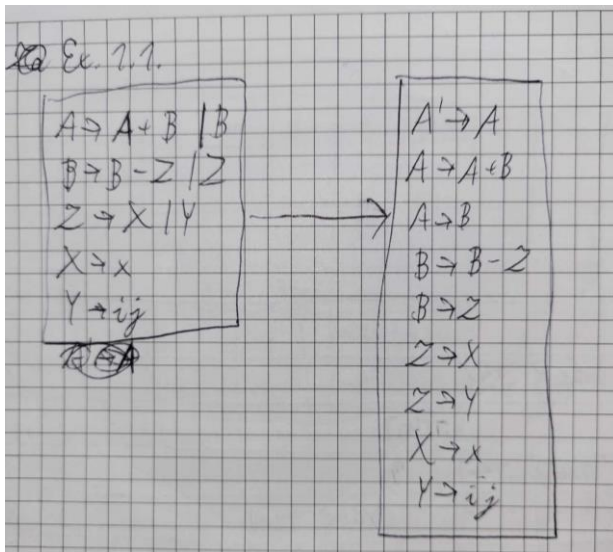 Ex. 1.1.
A → A + B | B
B → B - Z | Z
Z → X | Y
X → x
Y → ij
A' → A
A → A + B
A → B
B → B - Z
B → Z
Z → X
Z → Y
X → x
Y → ij